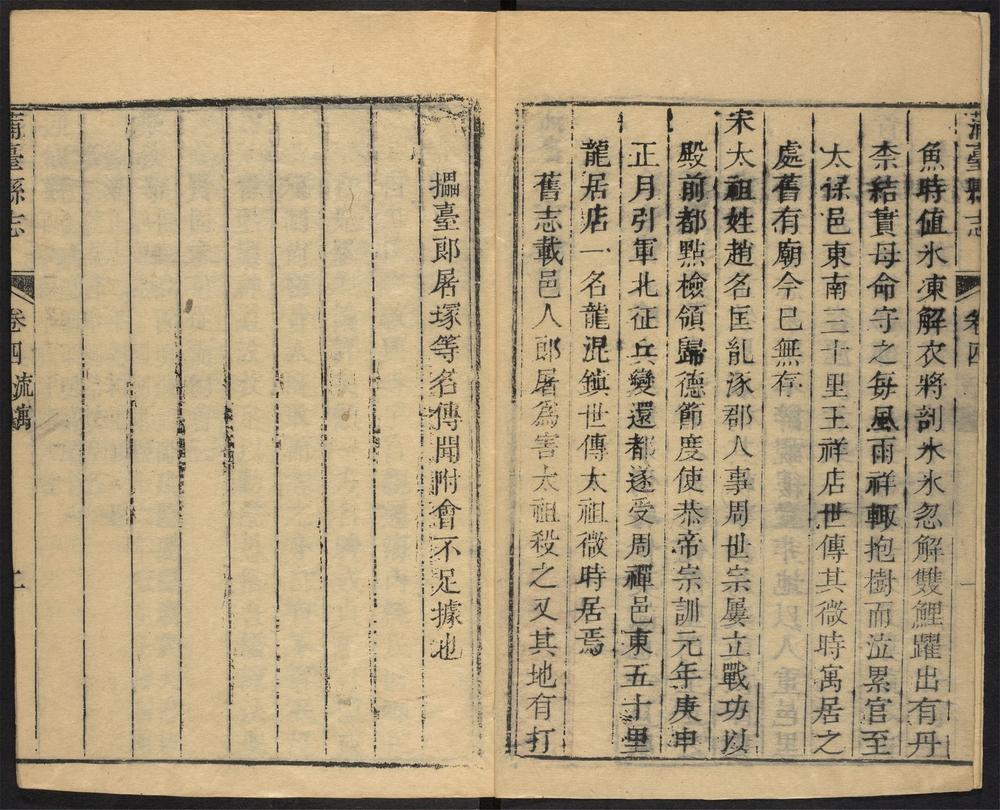 蒲臺縣志
卷四
魚時值氷凍解衣將剖氷氷忽解雙鯉躍出有丹
柰結實母命守之毎風雨祥輙抱樹而泣累官至
太保邑東南三十里王祥店世傳其微時寓居之
處舊有廟今已無存
宋太祖姓趙名匡胤涿郡人事周世宗屢立戰功以
殿前都點檢領歸德節度使恭帝宗訓元年庚申
正月引軍北征兵變還都遂受周禪邑東五十里
龍居店一名龍混鎮世傳太祖微時居焉
舊志載邑人郎屠爲害太祖殺之又其地有打
擂臺郎屠塚等名傳聞附會不足據也
蒲臺縣志
卷四 流寓
二